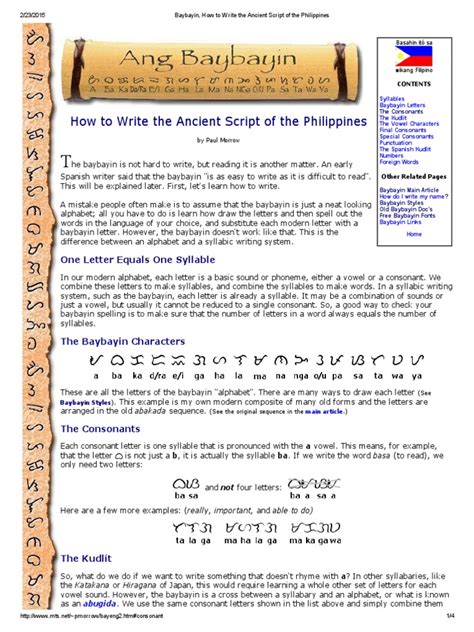 2/23/2015
Baybayin, How to Write the Ancient Script of the Philippines
Ang Baybayin
A Ba Ka Da/Ra E/I Ga Ha La Ma Na NGa O/U Pa Sa Ta Wa Ya
Basahin itó sa
wikang Filipino
CONTENTS
Syllables
Baybayin Letters
The Consonants
The Kudlit
The Vowel Characters
Final Consonants
Special Consonants
Punctuation
The Spanish Kudlit
Numbers
Foreign Words
Other Related Pages
Baybayin Main Article
How do I write my name?
Baybayin Styles
Old Baybayin Doc's
Free Baybayin Fonts
Baybayin Links
Home
How to Write the Ancient Script of the Philippines
by Paul Morrow
The baybayin is not hard to write, but reading it is another matter. An early
Spanish writer said that the baybayin "is as easy to write as it is difficult to read".
This will be explained later. First, let's learn how to write.
A mistake people often make is to assume that the baybayin is just a neat looking
alphabet; all you have to do is learn how draw the letters and then spell out the
words in the language of your choice, and substitute each modern letter with a
baybayin letter. However, the baybayin doesn't work like that. This is the
difference between an alphabet and a syllabic writing system.
One Letter Equals One Syllable
In our modern alphabet, each letter is a basic sound or phoneme, either a vowel or a consonant. We
combine these letters to make syllables, and combine the syllables to make words. In a syllabic writing
system, such as the baybayin, each letter is already a syllable. It may be a combination of sounds or
just a vowel, but usually it cannot be reduced to a single consonant. So, a good way to check your
baybayin spelling is to make sure that the number of letters in a word always equals the number of
syllables.
The Baybayin Characters
ᜀ ᜊ ᜃ ᜇ ᜁ ᜄ ᜑ ᜎ ᜋ ᜈ ᜅ ᜂ ᜉ ᜐ ᜆ ᜏ ᜌ
a ba ka d/ra e/i ga ha la ma na nga o/u pa sa ta wa ya
These are all the letters of the baybayin "alphabet". There are many ways to draw each letter (See
Baybayin Styles). This example is my own modern composite of many old forms and the letters are
arranged in the old abakada sequence. (See the original sequence in the main article.)
The Consonants
Each consonant letter is one syllable that is pronounced with the a vowel. This means, for example,
that the letter ᜊ is not just a b, it is actually the syllable ba. If we write the word basa (to read), we
only need two letters:
ᜊᜐ and not four letters: ᜊᜀᜐᜀ
ba sa
ba a sa a
Here are a few more examples: (really, important, and able to do)
ᜆᜎᜄ ᜋᜑᜎᜄ ᜋᜃᜄᜏ
ta la ga ma ha la ga ma ka gawa
The Kudlit
So, what do we do if we want to write something that doesn't rhyme with a? In other syllabaries, like
the Katakana or Hiragana of Japan, this would require learning a whole other set of letters for each
vowel sound. However, the baybayin is a cross between a syllabary and an alphabet, or what is known
as an abugida. We use the consonant letters shown in the list above and simply combine them
http://www.mts.net/~pmorrow/bayeng2.htm#consonant
1/4